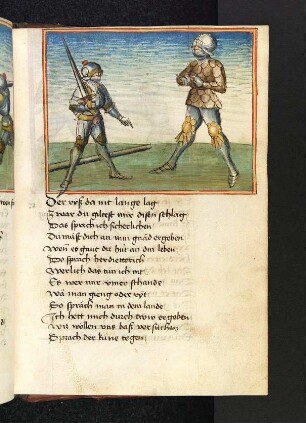 Der ryß da nit lange lag
Zwar du giltest mir disen schlag
Das sprach ich sicherlichen
Du must dich an min gnad ergeben
Wen es gaut dir hut an din leben
Do sprach her dietterich
Werlich das tun ich nit
Es wer mir ymer schande
Wa man gieng oder ryt
So spräch man in dem lande
Ich hett mich durch ergeben
Wir wollen vns baß versuchen
Sprach der kune tegen